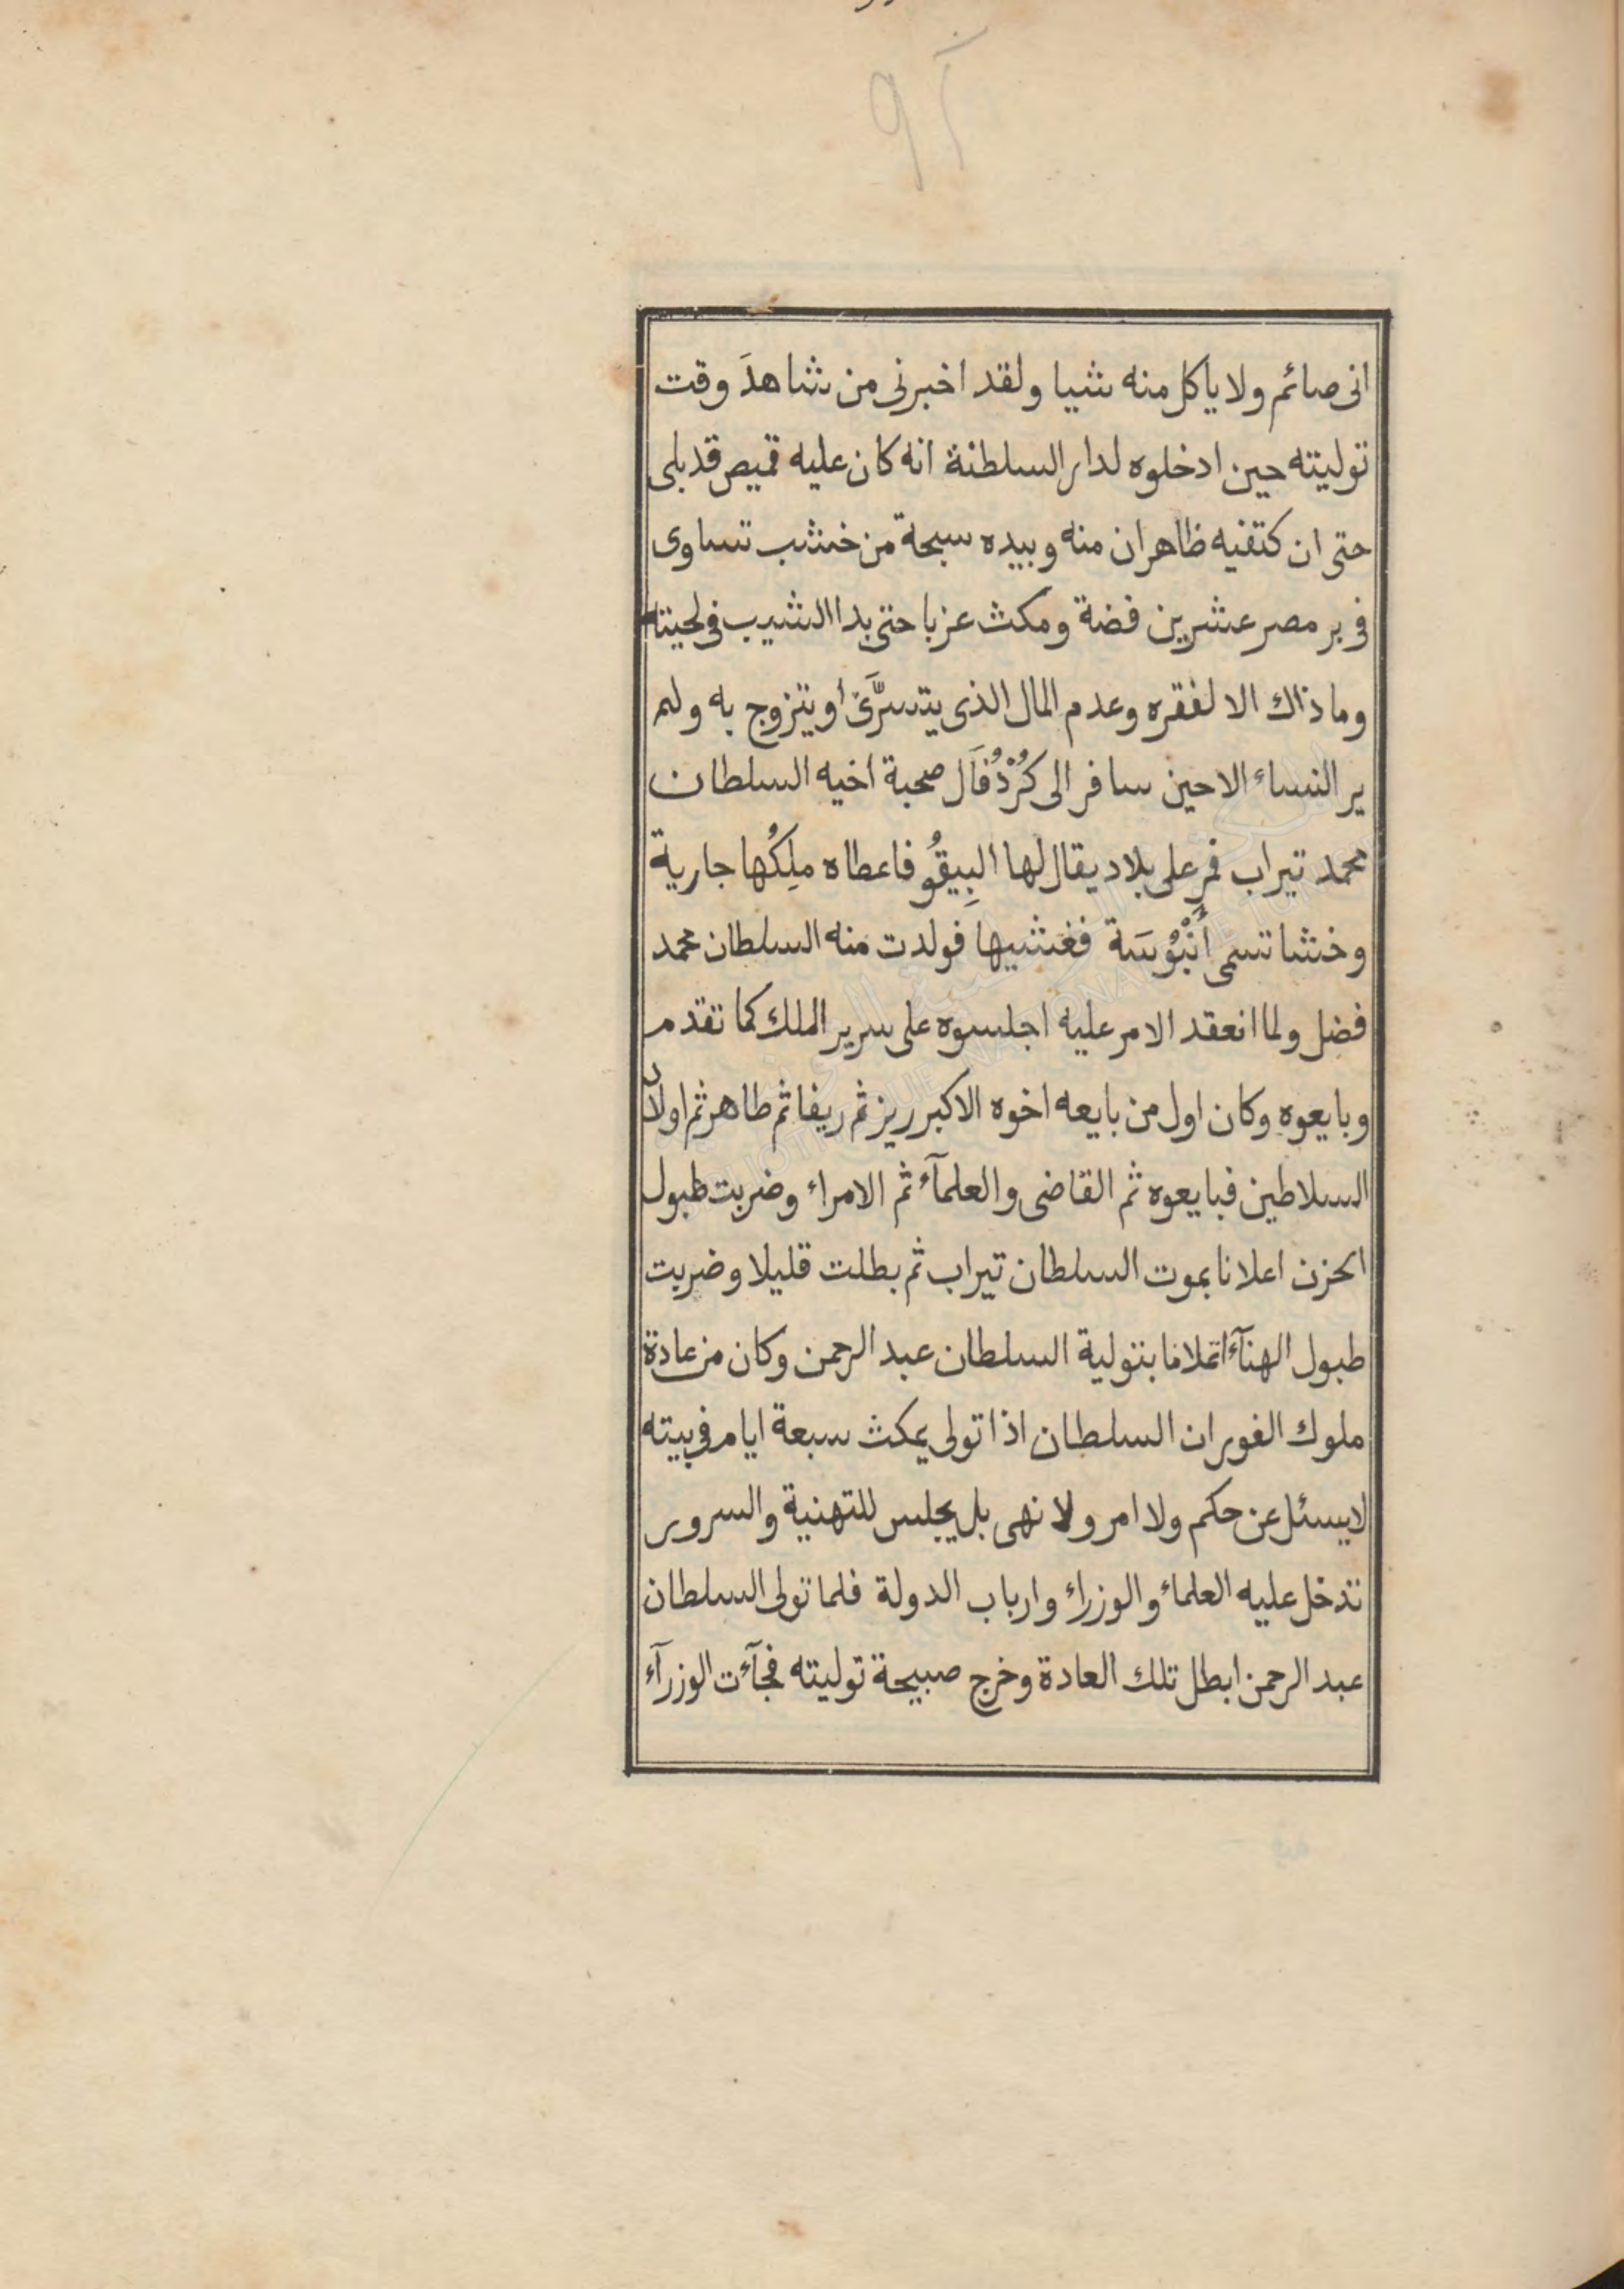 ٩٢
انى صائم ولا ياكل منه شيا ولقد اخبرنى من شاهدَ وقت
توليته حين ادخلوه لدار السلطنة انه كان عليه قميص قد بلى
حتى ان كتفيه ظاهران منه وبيده سبحة من خشب تساوى
فى بر مصر عشرين فضة ومكث عزبا حتى بدا الشيب فى لحيته
وما ذاك الا لفقره وعدم المال الذى يتسرَّى او يتزوج به ولم
ير النساء الا حين سافر الى كُرْدُفَال صحبة اخيه السلطان
محمد تيراب فمر على بلاد يقال لها البِيقُو فاعطاه ملِكُها جارية
وخشا تسمى أَنْبُوسَة فغشيها فولدت منه السلطان محمد
فضل ولما انعقد الامر عليه اجلسوه على سرير الملك كما تقدم
وبايعوه وكان اول من بايعه اخوه الاكبر ريز ثم ريفا ثم طاهر ثم اولاد
السلاطين فبايعوه ثم القاضى والعلمآء ثم الامراء وضربت طبول
الحزن اعلانا بموت السلطان تيراب ثم بطلت قليلا وضربت
طبول الهنآء اعلانا بتولية السلطان عبد الرحمن وكان من عادة
ملوك الفور ان السلطان اذا تولى يمكث سبعة ايام فى بيته
لا يسئل عن حكم ولا امر ولا نهى بل يجلس للتهنية والسرور
تدخل عليه العلماء والوزراء وارباب الدولة فلما تولى السلطان
عبد الرحمن ابطل تلك العادة وخرج صبيحة توليته فجآءت الوزرآء